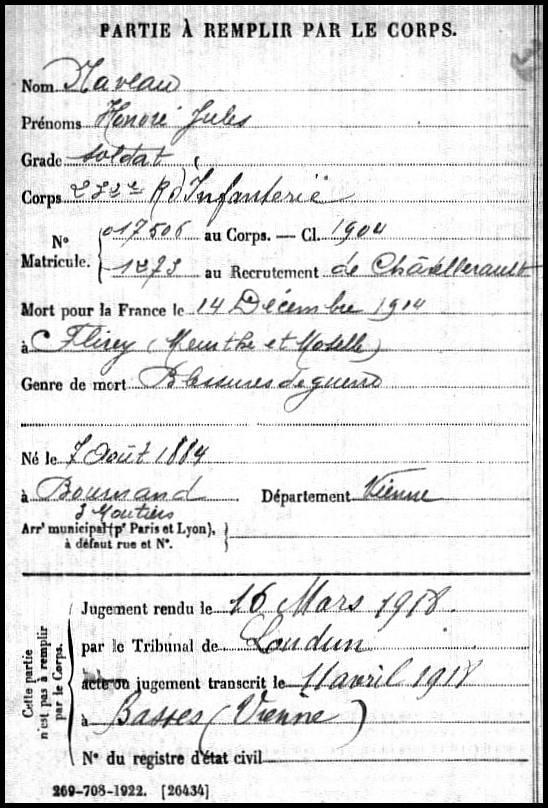 PARTIE À REMPLIR PAR LE CORPS.
Nom Naveau
Prénoms Honoré Jules
Grade soldat
Corps 232e R d'Infanterie
N° Matricule. 017506 au Corps. — Cl. 1904
1273 au Recrutement de Châtellerault
Mort pour la France le 14 Décembre 1914
à Flirey (Meurthe et Moselle)
Genre de mort Blessures de guerre
Né le 7 Août 1884
à Bournand Département Vienne
3 Moutiers
Arrt municipal (pr Paris et Lyon),
à défaut rue et N°.
Cette partie n'est pas à remplir par le Corps.
Jugement rendu le 16 Mars 1918.
par le Tribunal de Loudun
acte ou jugement transcrit le 11 avril 1918
à Basses (Vienne)
N° du registre d'état civil
269-708-1922. [26434]